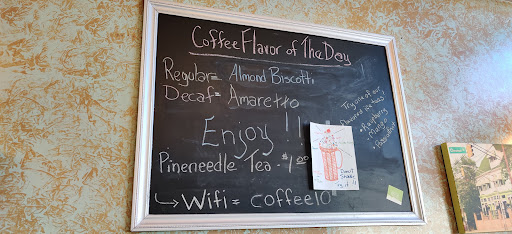 Coffee Flavor of The Day
Regular= Almond Biscotti
Decaf= Amaretto
Enjoy!!
Pineneedle Tea - $1
Wifi= coffee10
Try one of our
flavored
Raspberry
- Mango